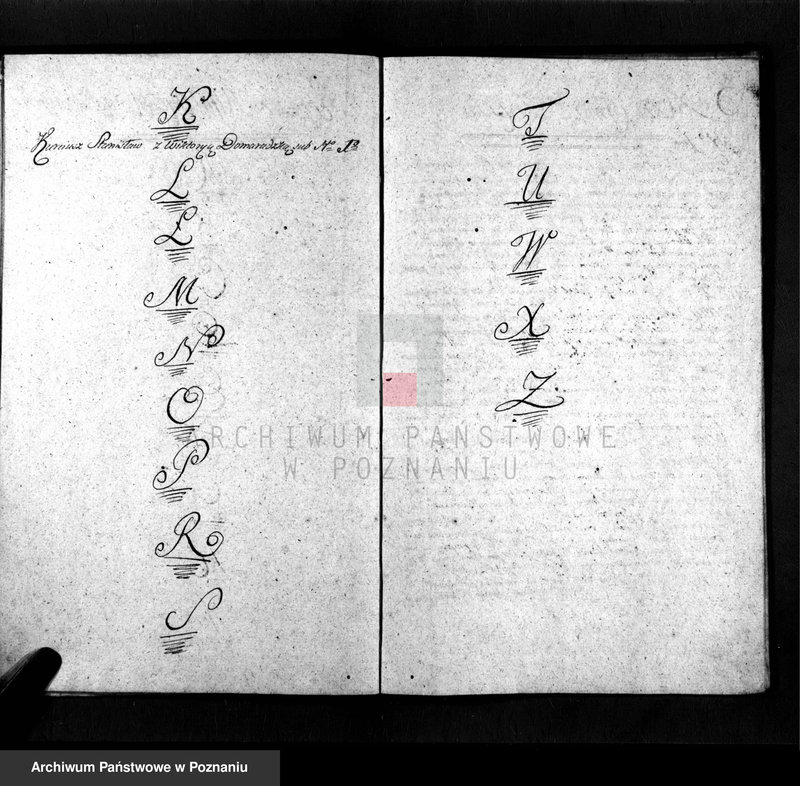 K
Kuminsz Stanisław z Wiktoryą Domaradzką sub No 1o
L
Ł
M
N
O
P
R
S
T
U
W
X
Z
ARCHIWUM PAŃSTWOWE
W POZNANIU
Archiwum Państwowe w Poznaniu